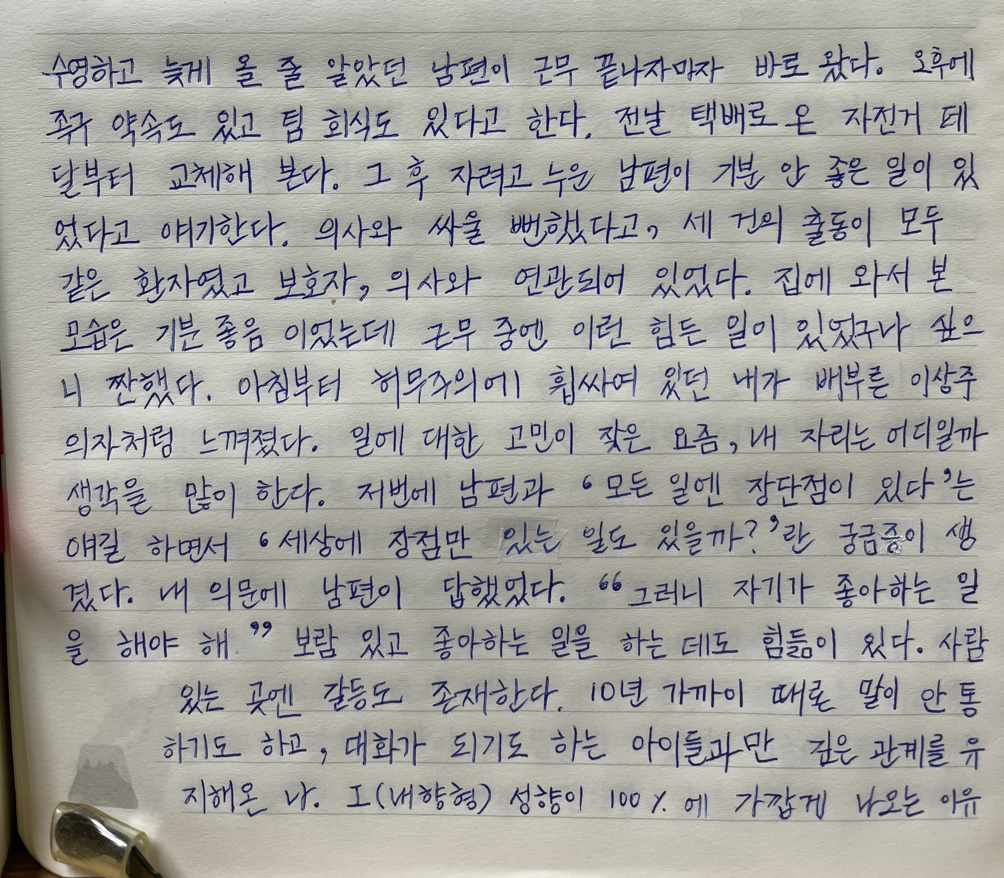 수영하고 늦게 올 줄 알았던 남편이 근무 끝나자마자 바로 왔다. 오후에
족구 약속도 있고 팀 회식도 있다고 한다. 전날 택배로 온 자전거 페
달부터 교체해 본다. 그 후 자려고 누운 남편이 기분 안 좋은 일이 있
었다고 얘기한다. 의사와 싸울 뻔했다고, 세 건의 출동이 모두
같은 환자였고 보호자, 의사와 연관되어 있었다. 집에 와서 본
모습은 기분 좋음 이었는데 근무 중엔 이런 힘든 일이 있었구나 싶으
니 짠했다. 아침부터 허무주의에 휩싸여 있던 내가 배부른 이상주
의자처럼 느껴졌다. 일에 대한 고민이 잦은 요즘, 내 자리는 어디일까
생각을 많이 한다. 저번에 남편과 ‘모든 일엔 장단점이 있다’는
얘길 하면서 ‘세상에 장점만 있는 일도 있을까?’란 궁금증이 생
겼다. 내 의문에 남편이 답했었다. “그러니 자기가 좋아하는 일
을 해야 해” 보람 있고 좋아하는 일을 하는 데도 힘듦이 있다. 사람
있는 곳엔 갈등도 존재한다. 10년 가까이 때로 말이 안 통
하기도 하고, 대화가 되기도 하는 아이들과만 깊은 관계를 유
지해온 나. I(내향형) 성향이 100%에 가깝게 나오는 이유